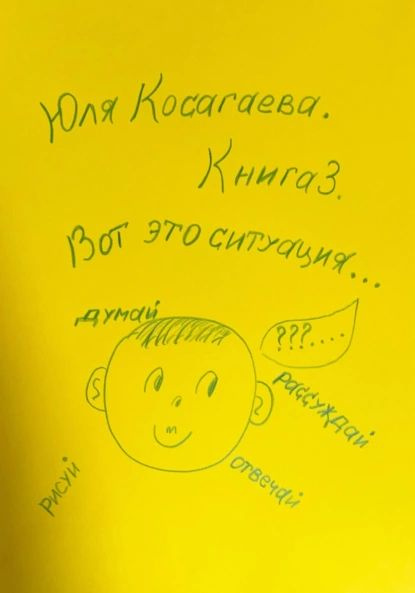 Юля Косагаева.
Книга 3.
Вот это ситуация...
думай
???....
рассуждай
рисуй
отвечай